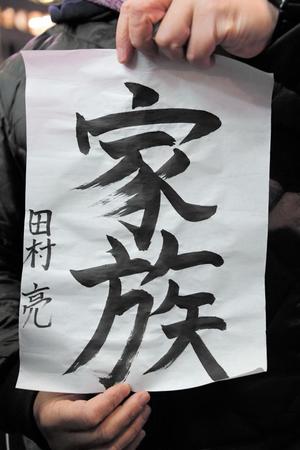 家族
田村亮